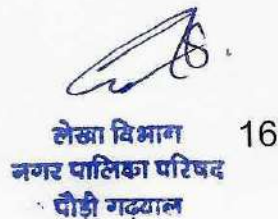 लेखा विभाग
16
नगर पालिका परिषद
पौड़ी गढ़वाल